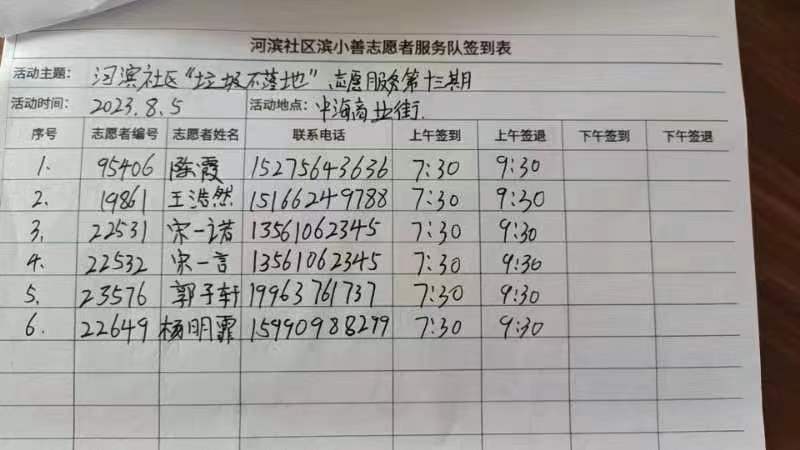 河滨社区滨小善志愿者服务队签到表
活动主题: 河滨社区“垃圾不落地”志愿服务第十三期
活动时间: 2023.8.5 活动地点: 中海商业街.
序号 志愿者编号 志愿者姓名 联系电话 上午签到 上午签退 下午签到 下午签退
1. 95406 陈霞 15275643636 7:30 9:30
2. 19861 王浩然 15166249788 7:30 9:30
3. 22531 宋一诺 13561062345 7:30 9:30
4. 22532 宋一言 13561062345 7:30 9:30
5. 23576 郭子轩 19963761737 7:30 9:30
6. 22649 杨明霏 15990988299 7:30 9:30